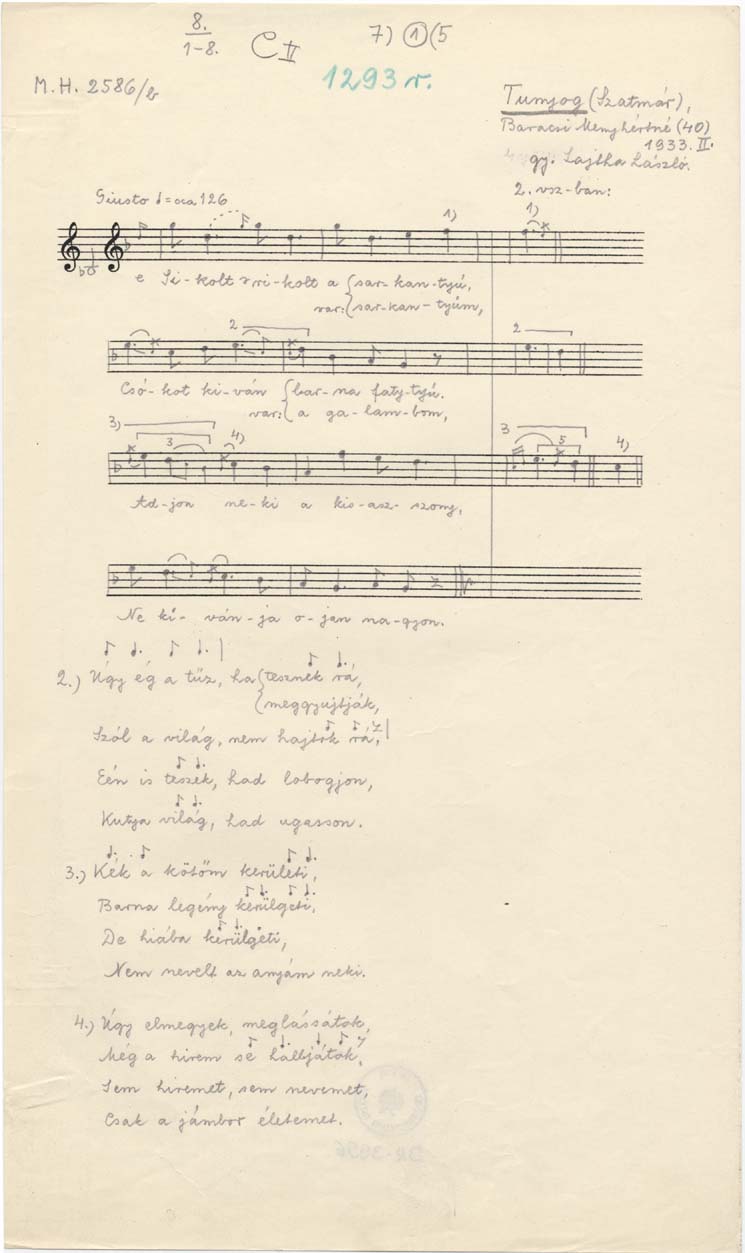 8.
1-8.
C V
7) 1 (5
M.H. 2586/b
1293 r.
Tunyog (Szatmár),
Baracsi Menyhértné (40)
1933. II.
gy. Lajtha László.
Giusto ♩=cca 126
2. vsz-ban:
1)
1)
e Si-kolt ri-kolt a sar-kan-tyú,
var: sar-kan-tyúm,
2
2
Csó-kot ki-ván bar-na faty-tyú.
var: a ga-lam-bom,
3)
3
4)
3
5
4)
Ad-jon ne-ki a kis-asz-szony,
Ne ki-ván-ja o-jan na-gyon.
2.) Úgy ég a tűz, ha tesznek rá,
meggyujtják,
Szól a világ, nem hajtok rá,
Eén is teszek, had lobogjon,
Kutya világ, had ugasson.
3.) Kék a kötőm kerületi,
Barna legény kerülgeti,
De hiába kerülgeti,
Nem nevelt az anyám neki.
4.) Úgy elmegyek, meglássátok,
Még a hirem se halljátok,
Sem hiremet, sem nevemet,
Csak a jámbor életemet.